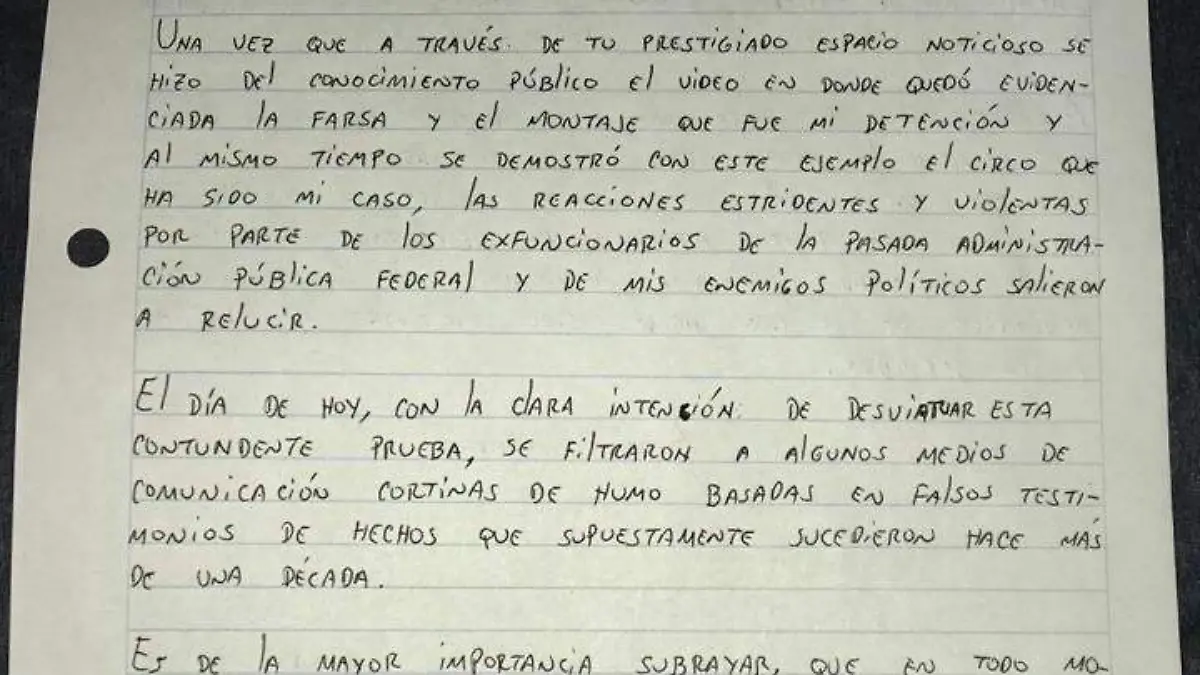 UNA VEZ QUE A TRAVÉS. DE TU PRESTIGIADO ESPACIO NOTICIOSO SE
HIZO DEl CONOCIMIENTO PÚBLICO El VIDEO EN DONDE QUEDÓ EVIDEN-
CIADA lA FARSA Y El MONTAJE QUE FUE MI DETENCIÓN Y
Al MISMO TIEMPO SE DEMOSTRÓ CON ESTE EJEMPLO El CIRCO QUE
HA SIDO MI CASO, lAS REACCIONES ESTRIDENTES Y VIOlENTAS
POR PARTE DE lOS EXFUNCIONARIOS DE lA PASADA ADMINISTRA-
CIÓN PÚBLICA FEDERAl Y DE MIS ENEMIGOS POlÍTICOS SALIERON
A RElUCIR.
El DÍA DE HOY, CON lA ClARA INTENCIÓN DE DESVIATUAR ESTA
CONTUNDENTE PRUEBA, SE FIlTRARON A AlGUNOS MEDIOS DE
COMUNICACIÓN CORTINAS DE HUMO BASADAS EN FALSOS TESTI-
MONIOS DE HECHOS QUE SUPUESTAMENTE SUCEDIERON HACE MÁS
DE UNA DÉCADA.
ES DE lA MAYOR IMPORTANCIA SUBRAYAR, QUE EN TODO MO-